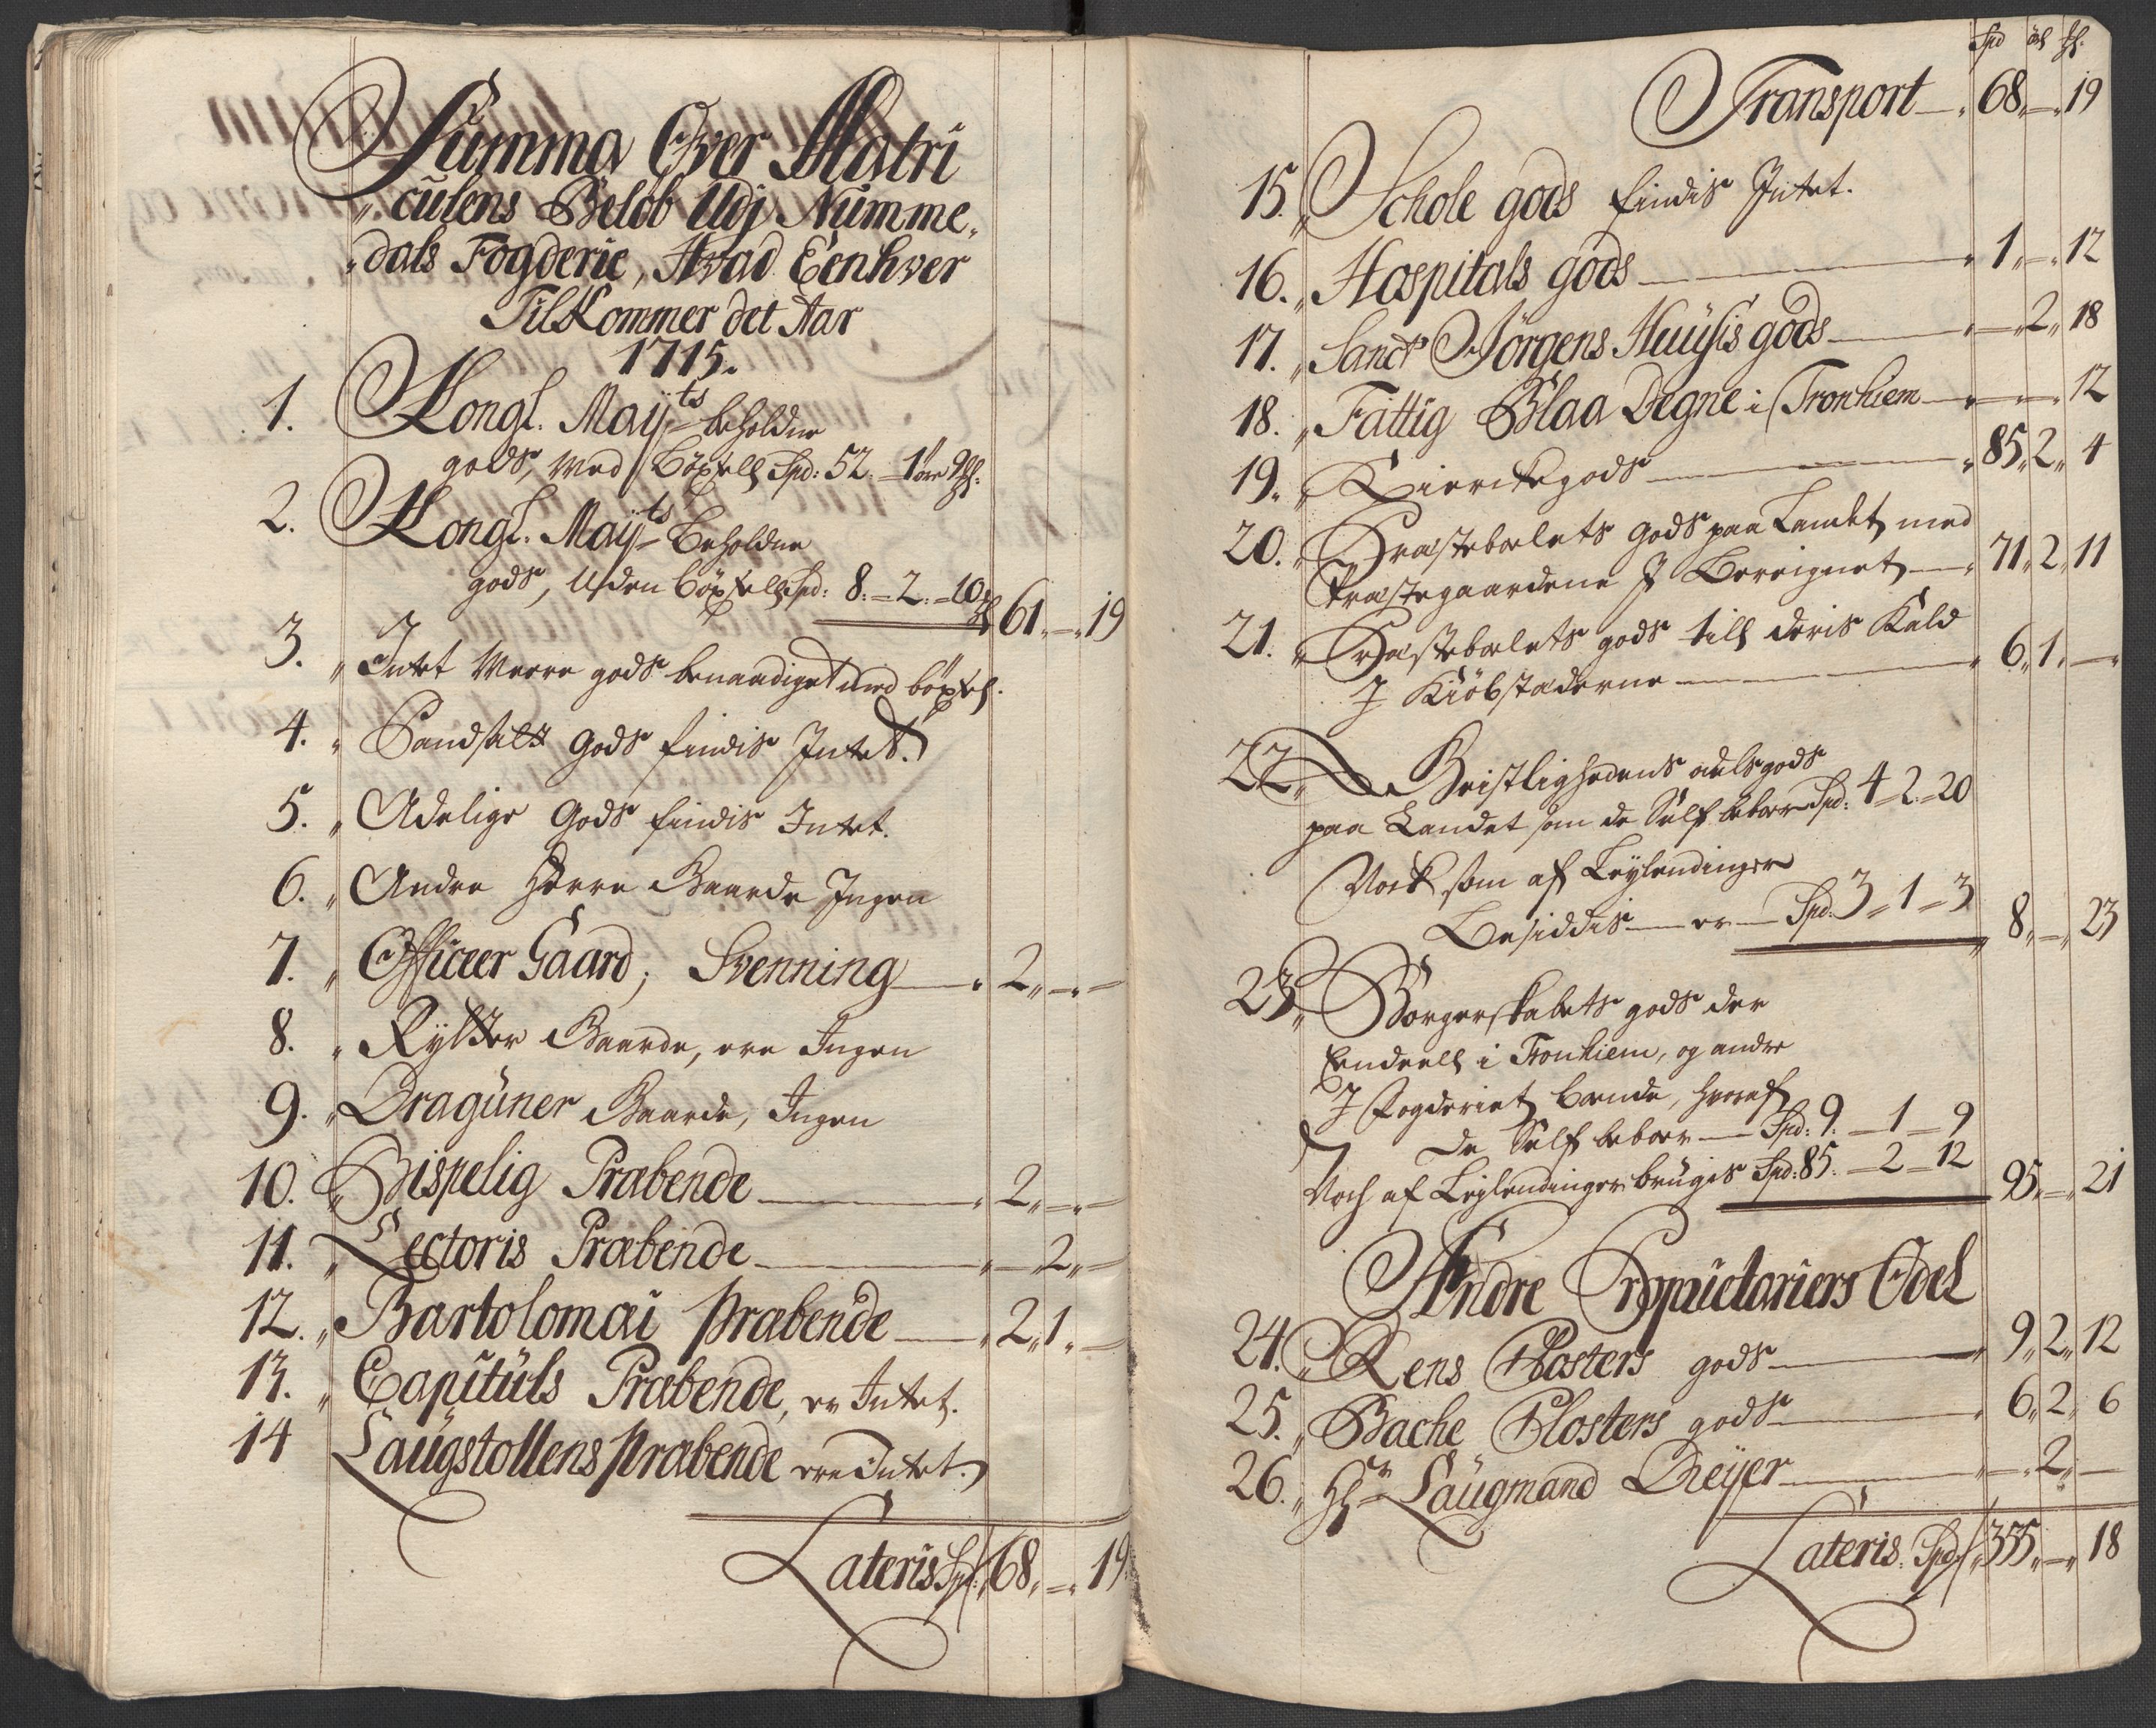 Summa Over Matri
culens Beløb Udj Numme,
dals Fogderie, Hvad Eenhver
TilKommer det Aar
1715.
1. Kongl. Mayts beholdne
gods, med böxsell Spd: 52. = 1 öre 9
2. Kongl. Mayts Beholdne
gods, Uden böxsell Spd: 8. = 2. = 10 61 " — " 19
3. " Intet Meere gods benaadiget med böxsel.
4. " gods findis Intet.
5. " Adelige Gods findis Intet.
6. " Andre Herre Gaarde Ingen
7. " Officeer Gaard; Svenning — " 2 " — " —
8. " Rytter Gaarde, ere Ingen
9. " Dragüner Gaarde, Ingen
10. " Bispelig Præbende — " 2 " — " —
11. " Lectoris Præbende — " — " 2 " —
12. " Bartolomæi Præbende — " 2 " 1 " —
13. " Capitüls Præbende, er Intet.
14 Laügstollens Præbende ere Intet.
Lateris Spd: 68 " — " 19.
Spd öre
Transport — " 68 " — " 19
15. " Schole gods findis Intet.
16. " Hospitals gods — " 1 " — " 12
17. " Sanct Jörgens Huusis gods — " — " 2 " 18
18. " Fattig Blaa Degne i Tronhiem — " — " — " 12
19. " Kierckegods — " 85 " 2 " 4
20. " Præstebolets Gods paa Landet, med
Præstegaardene J Bereignet — " 71 " 2 " 11
21. " Præstebolets gods till deris Kald
J Kiöbstæderne — " 6 " 1 " —
22 " Geistlighedens odelsgods
paa Landet som de Self beboer Spd: 4 = 2. = 20
Noch som af Leylendinger
Besiddis — er — Spd: 3 " 1 = 3 " 8 " — " 23
23 " Borgerskabets gods der
Eendeell i Tronhiem, og andre
J Fogderiet boende, hvoraf
De Self beboer — Spd: 9. — 1 — 9
Noch af Leylendinger brugis Spd: 85. = 2 = 12 95 " — " 21
Andre Proprietariers Odel
24. " Rens Closters gods — " 9 " 2 " 12
25. " Bache Closters gods — " 6 " 2 " 6
26. " Hr Laügmand Dreyer — " — " 2 " —
Lateris. Spd: 355 " — " 18